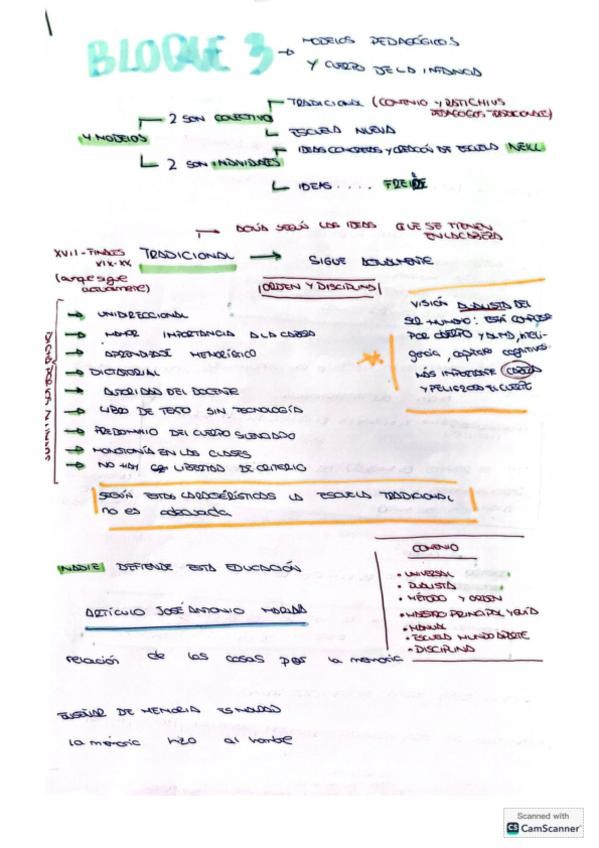 BLOQUE 3 → MODELOS PEDAGÓGICOS
Y CUERPO DE LA INFANCIA
4 MODELOS
2 SON COLECTIVO
TRADICIONAL (COMENIO Y RATICHIUS
PEDAGOGOS TRADICIONALES)
ESCUELA NUEVA
2 SON INDIVIDUALES
IDEAS CONCRETAS Y CREACIÓN DE ESCUELA NEILL
IDEAS .... FREIRE
SEGÚN LOS IDEAS QUE SE TIENEN
EN LA CABEZA
XVII - FINALES
XIX-XX
TRADICIONAL → SIGUE
actualmente)
ORDEN Y DISCIPLINA
→ UNIDIRECCIONAL
→ MAYOR IMPORTANCIA A LA CABEZA
→ APRENDIZAJE MEMORÍSTICO
→ DICTATORIAL
→ AUTORIDAD DEL DOCENTE
→ LIBRO DE TEXTO SIN TECNOLOGÍA
→ PREDOMINIO DEL CUERPO SILENCIADO
→ MONOTONÍA EN LAS CLASES
→ NO HAY LIBERTAD DE CRITERIO
VISIÓN DUALISTA DEL
SER HUMANO: ESTÁ
POR CUERPO Y ALMA, inteli-
gencia,
MÁS IMPORTANTE CABEZA
Y PELIGROSO EL CUERPO
SEGÚN ESTAS CARACTERÍSTICAS LA ESCUELA TRADICIONAL
no es adecuada
NADIE DEFIENDE ESTA EDUCACIÓN
COMENIO
• UNIVERSAL
• DUALISTA
• MÉTODO Y ORDEN
• MAESTRO PRINCIPAL Y GUÍA
• MANUAL
• ESCUELA MUNDO APARTE
• DISCIPLINA
ARTÍCULO JOSÉ ANTONIO MARINA
relación de las cosas por la memoria
ENSEÑAR DE MEMORIA ES MALO
la memoria hizo al hombre
Scanned with
CS CamScanner